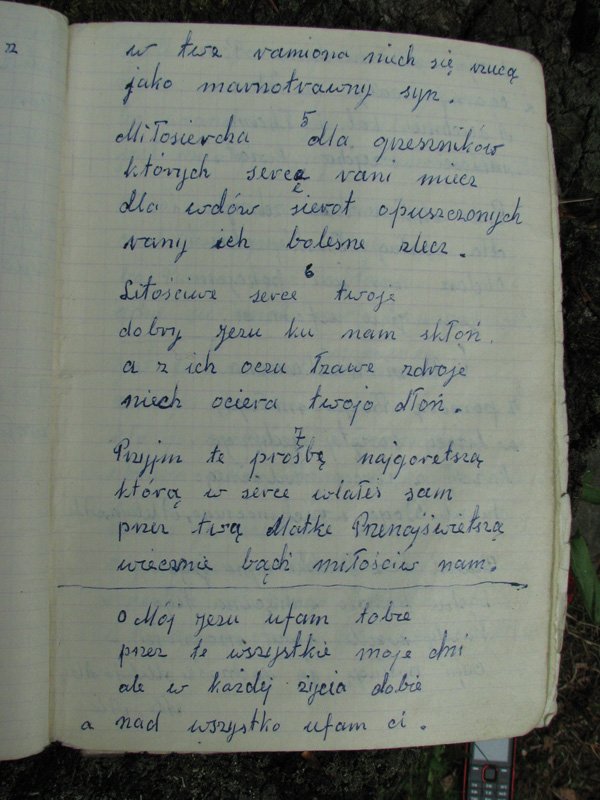 w twe ramiona niech się rzucą
jako marnotrawny syn.
5
Miłosierdia dla grzeszników
których serce rani miecz
dla wdów sierot opuszczonych
rany ich bolesne zlecz.
6
Litościwe serce twoje
dobry jezu ku nam skłoń.
a z ich oczu łzawe zdroje
niech ociera twoja dłoń.
7
Przyjm te prośbę najgoretszą
którą w serce wlałeś sam
przez twą Matke Przenajświetszą
wiecznie bądź miłościw nam.
O Mój jezu ufam tobie
przez te wszystkie moje dni
ale w każdej życia dobie
a nad wszystko ufam ci.